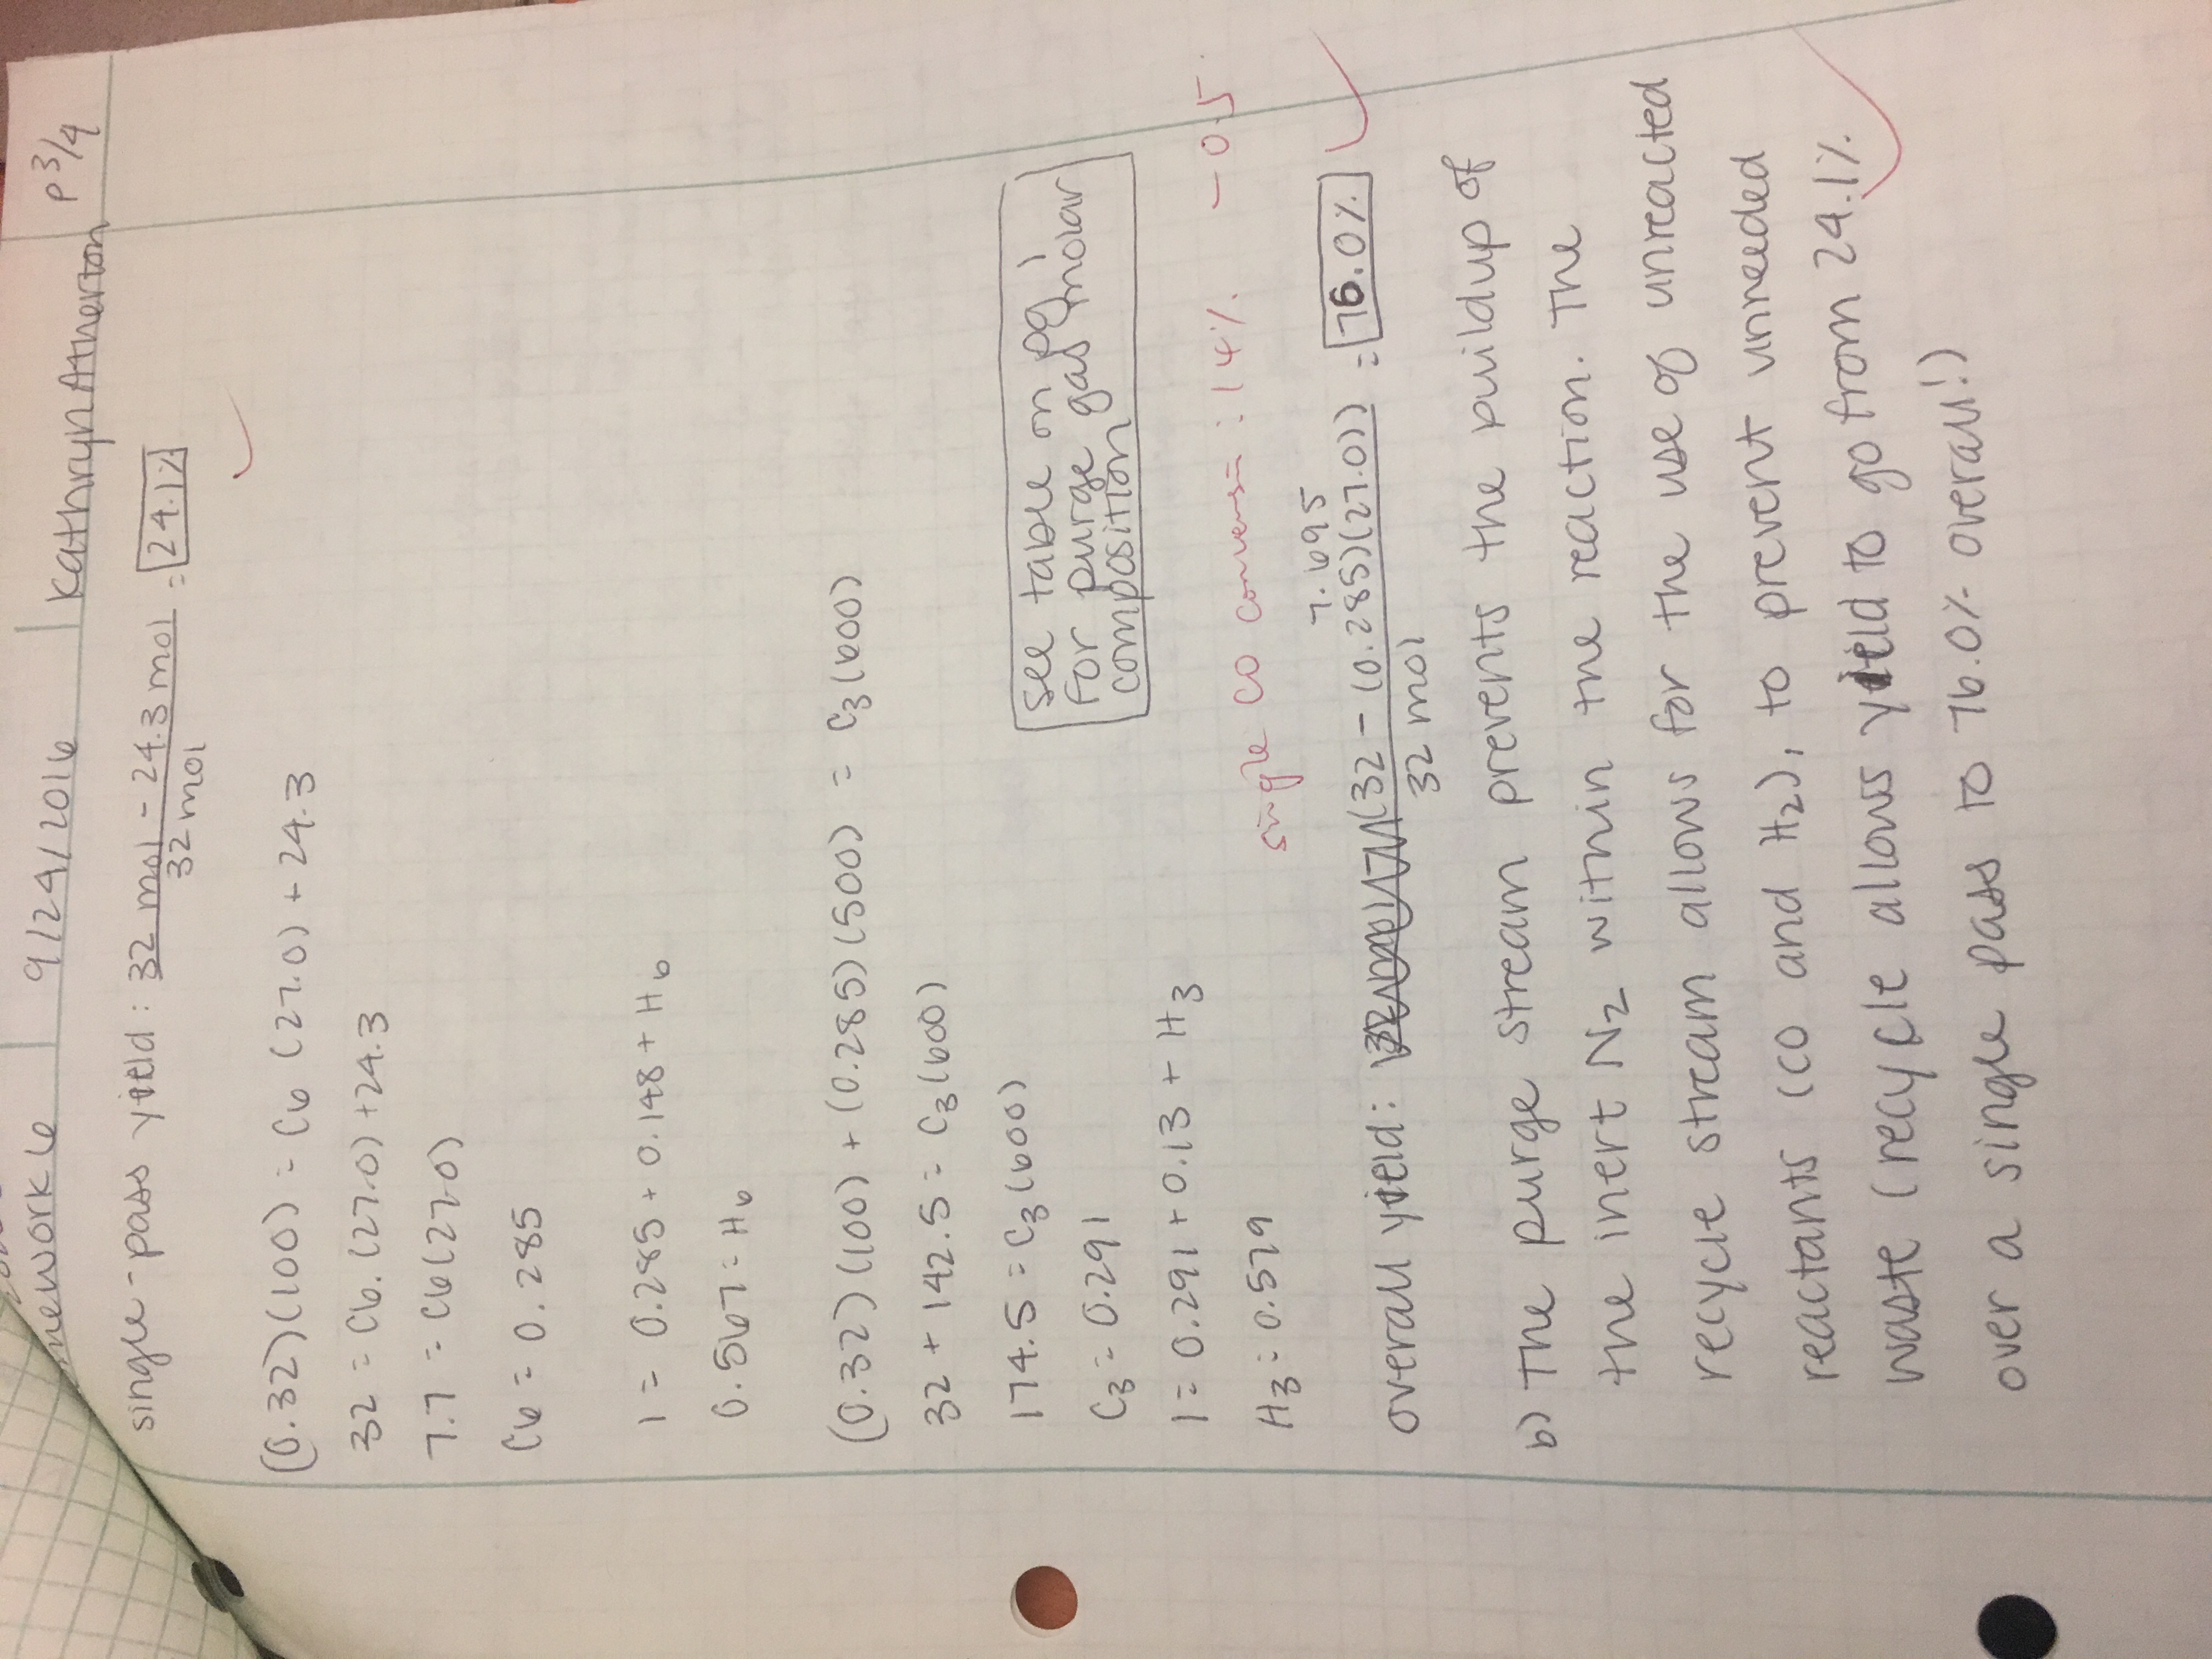 mework 6 9/24/2016 Kathryn Atherton p 3/4
single-pass yield: 32 mol - 24.3 mol / 32 mol = 24.1%
(0.32)(100) = C6 (27.0) + 24.3
32 = C6 (27.0) + 24.3
7.7 = C6 (27.0)
C6 = 0.285
1 = 0.285 + 0.148 + H6
0.567 = H6
(0.32)(100) + (0.285)(500) = C3(600)
32 + 142.5 = C3(600)
174.5 = C3(600)
C3 = 0.291
see table on pg 1
for purge gas molar
composition
1 = 0.291 + 0.13 + H3
H3 = 0.579
single CO conversion: 14% -0.5
7.695
overall yield: (32 - (0.285)(27.0)) / 32 mol = 76.0%
b) The purge stream prevents the buildup of
the inert N2 within the reaction. The
recycle stream allows for the use of unreacted
reactants (CO and H2), to prevent unneeded
waste (recycle allows yield to go from 24.1%
over a single pass to 76.0% overall!)